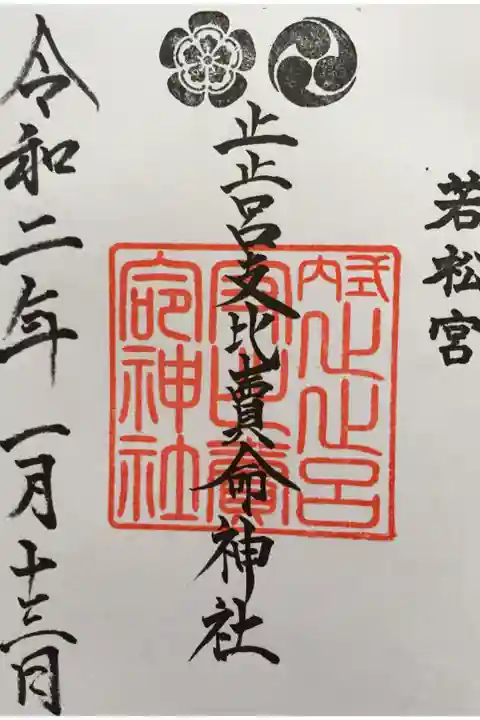 若松宮
止止呂支比賣命神社
式内止止呂支比賣命神社
令和二年一月十三日